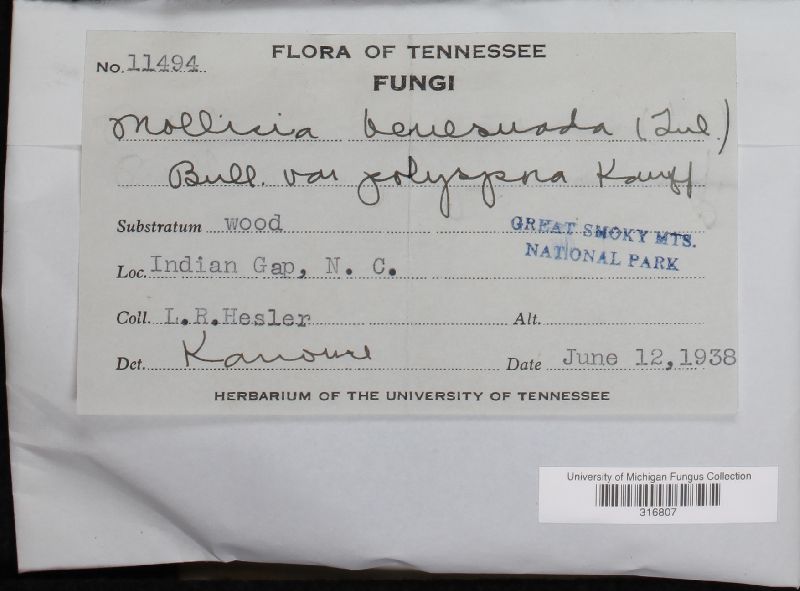 FLORA OF TENNESSEE
No. 11494
FUNGI
Mollisia benesuada (Tul.)
Bull. var polyspora Kauff
Substratum wood
GREAT SMOKY MTS.
NATIONAL PARK
Loc. Indian Gap, N. C.
Coll. L.R.Hesler Alt.
Det. Kanouse Date June 12,1938
HERBARIUM OF THE UNIVERSITY OF TENNESSEE
University of Michigan Fungus Collection
316807